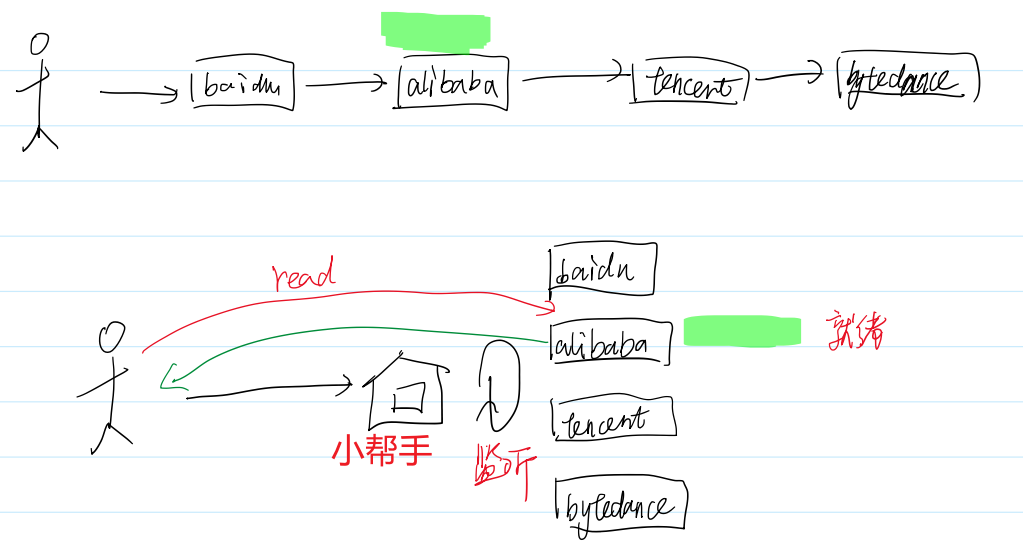 baidu
alibaba
tencent
bytedance
read
baidu
alibaba
就绪
小帮手
监听
tencent
bytedance